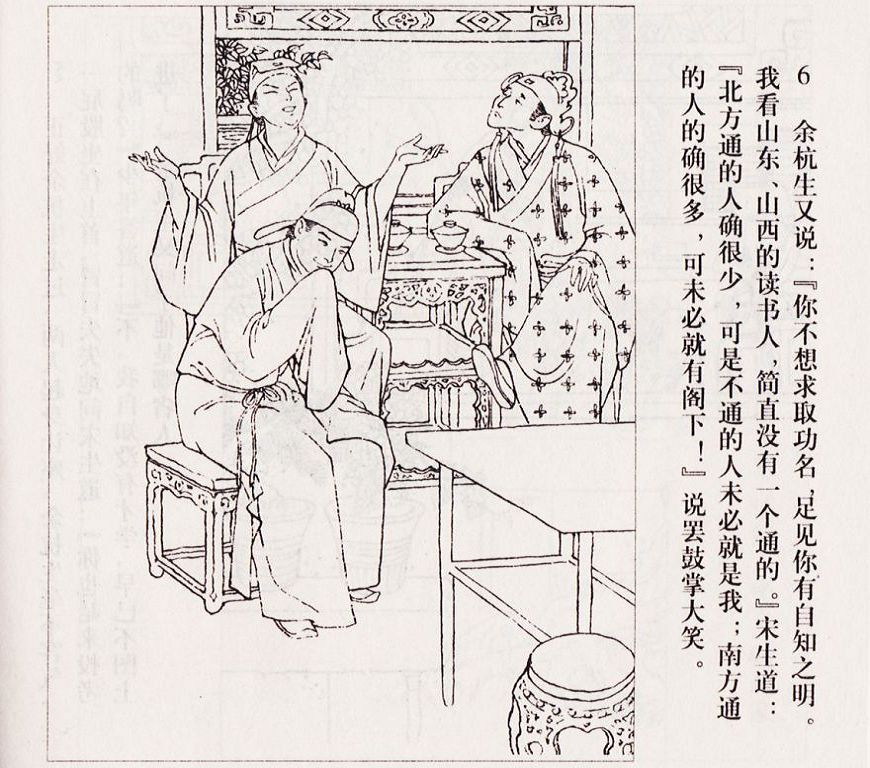 6 余杭生又说：『你不想求取功名，足见你有自知之明。
我看山东、山西的读书人，简直没有一个通的。』宋生道：
『北方通的人确很少，可是不通的人未必就是我；南方通
的人的确很多，可未必就有阁下！』说罢鼓掌大笑。